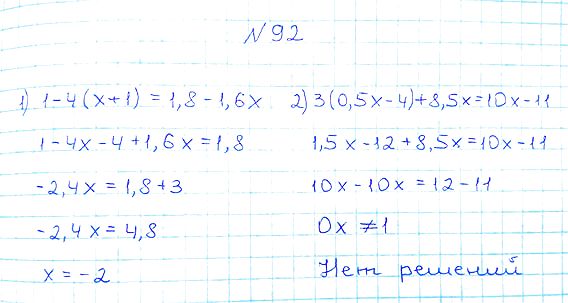 N 92
1) 1-4(x+1) = 1,8-1,6x
1-4x-4+1,6x=1,8
-2,4x = 1,8+3
-2,4x = 4,8
x = -2
2) 3(0,5x-4)+8,5x=10x-11
1,5x-12+8,5x=10x-11
10x-10x = 12-11
0x ≠1
Нет решений